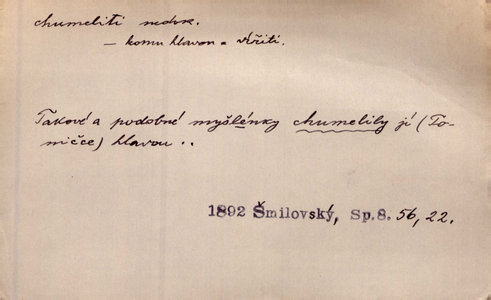 chumeliti nedok.
— komu hlavou = vířiti.
Takové a podobné myšlénky chumelily jí (To-
ničce) hlavou ..
1892 Šmilovský, Sp.8. 56, 22.